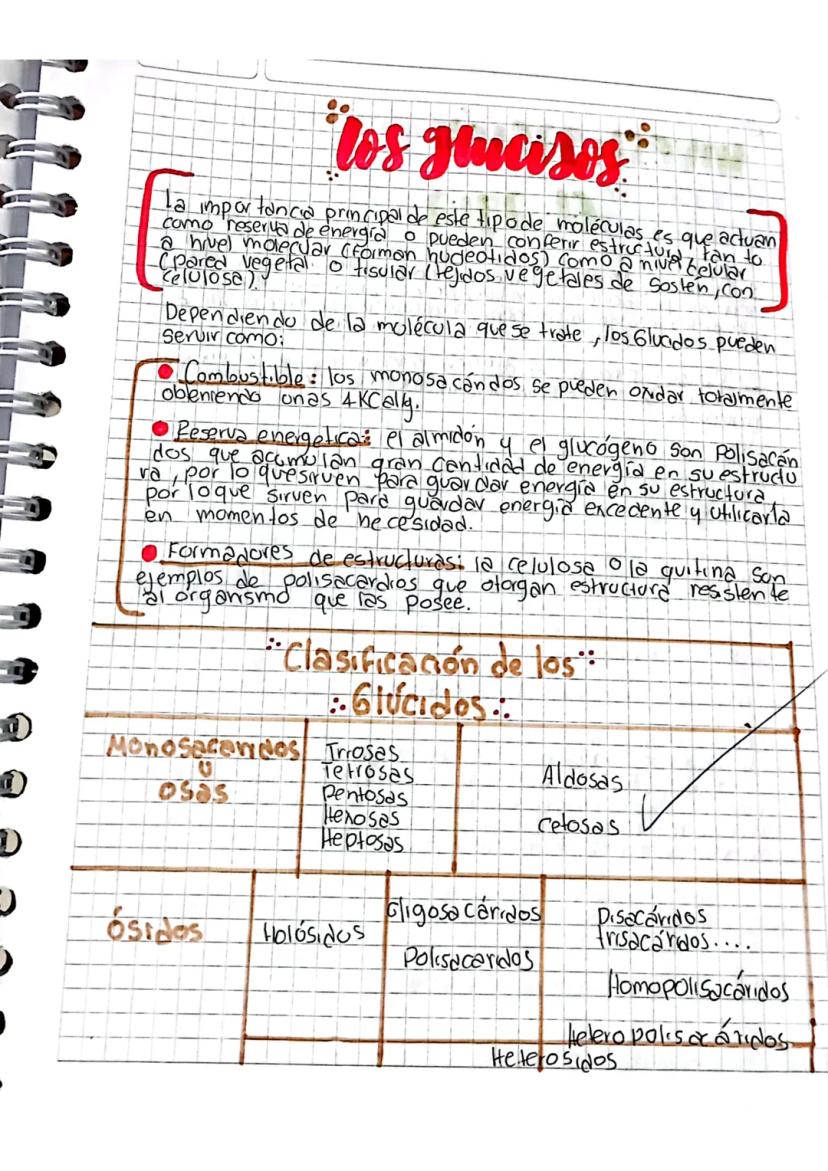 los glucisos
La importancia principal de este tipo de moléculas es que actuan
como reserva de energía o pueden conferir estructura, tan to
a nivel molecular (forman nucleotidos) como a nivel celular
(pared vegetal o tisular (tejidos vegetales de sostén, con
celulosa).
Dependiendo de la molécula que se trate, los Glucidos pueden
servir como:
• Combustible: los monosacáridos se pueden oxidar totalmente
obteniendo unas 4KCal/g.
• Reserva energetica: el almidón y el glucógeno son polisacári
dos que acumulan gran cantidad de energía en su estructu
ra, por lo que sirven para guardar energía en su estructura
por lo que sirven para guardar energía excedente y utilizarla
en momentos de necesidad.
• Formadores de estructuras: la celulosa o la quitina son
ejemplos de polisacardios que otorgan estructura resistente
al organismo que las posee.
Clasificación de los
Glúcidos
Monosacaridos
u
osas
Triosas
Tetrosas
Pentosas
Hexosas
Heptosas
Aldosas
Cetosas
Ósidos
Holósidos
Oligosacáridos
Polisacaridos
Disacáridos
trisacáridos....
Homopolisacáridos
Heteropolisacáridos
Heterosidos